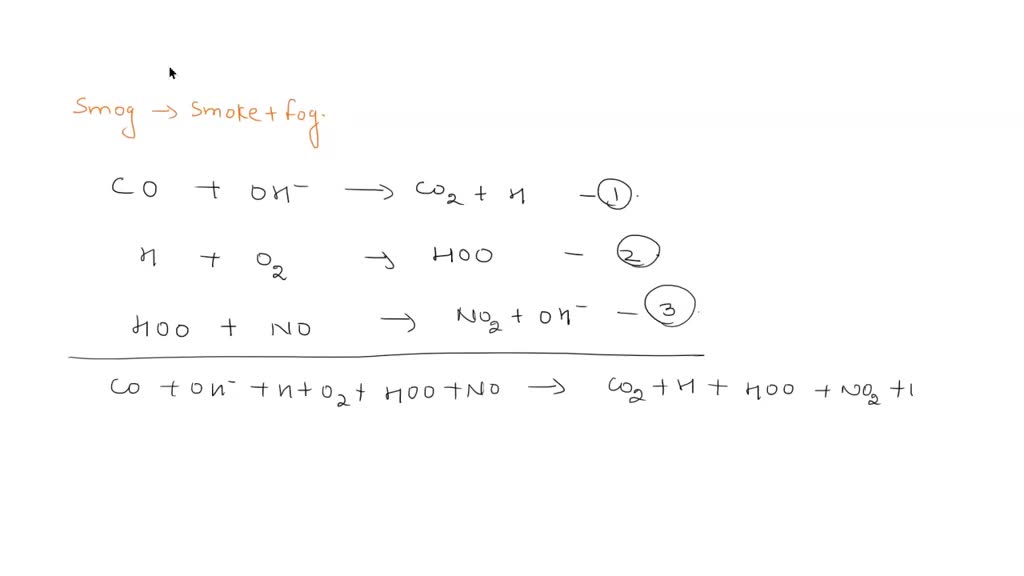 Smog → Smoke + fog.
CO + OH⁻ → CO₂ + H - ①.
H + O₂ → HOO - ②
HOO + NO → NO₂ + OH⁻ - ③.
CO + OH⁻ + H + O₂ + HOO + NO → CO₂ + H + HOO + NO₂ + l